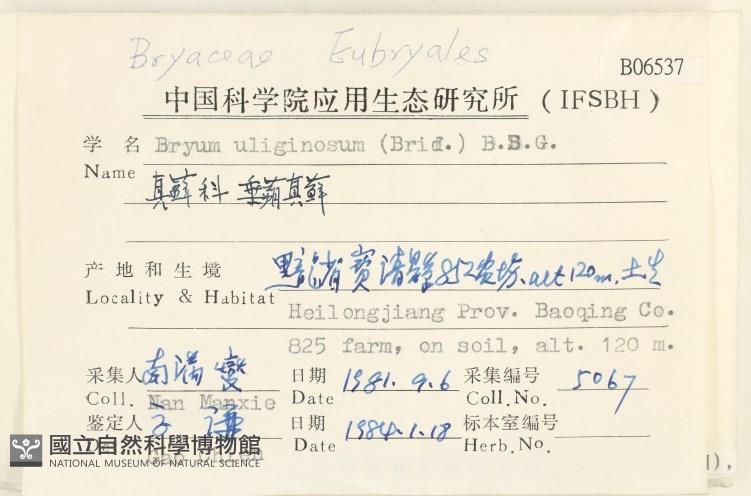 Bryaceae Eubryales
B06537
中国科学院应用生态研究所 (IFSBH)
学 名 Bryum uliginosum (Brid.) B.S.G.
Name
真蘚科 垂蒴真蘚
产地和生境 黑龍省寶清縣852农場.alt 120m.土生
Locality & Habitat Heilongjiang Prov. Baoqing Co.
825 farm, on soil, alt. 120 m.
采集人 南满 日期 1981.9.6 采集编号 5067
Coll. Nan Manxie Date Coll.No.
鉴定人 日期 1984.1.18 标本室编号
Date Herb.No.
國立自然科學博物館
NATIONAL MUSEUM OF NATURAL SCIENCE